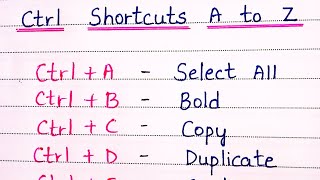 Ctrl Shortcuts A to Z
Ctrl + A - Select All
Ctrl + B - Bold
Ctrl + C - Copy
Ctrl + D - Duplicate